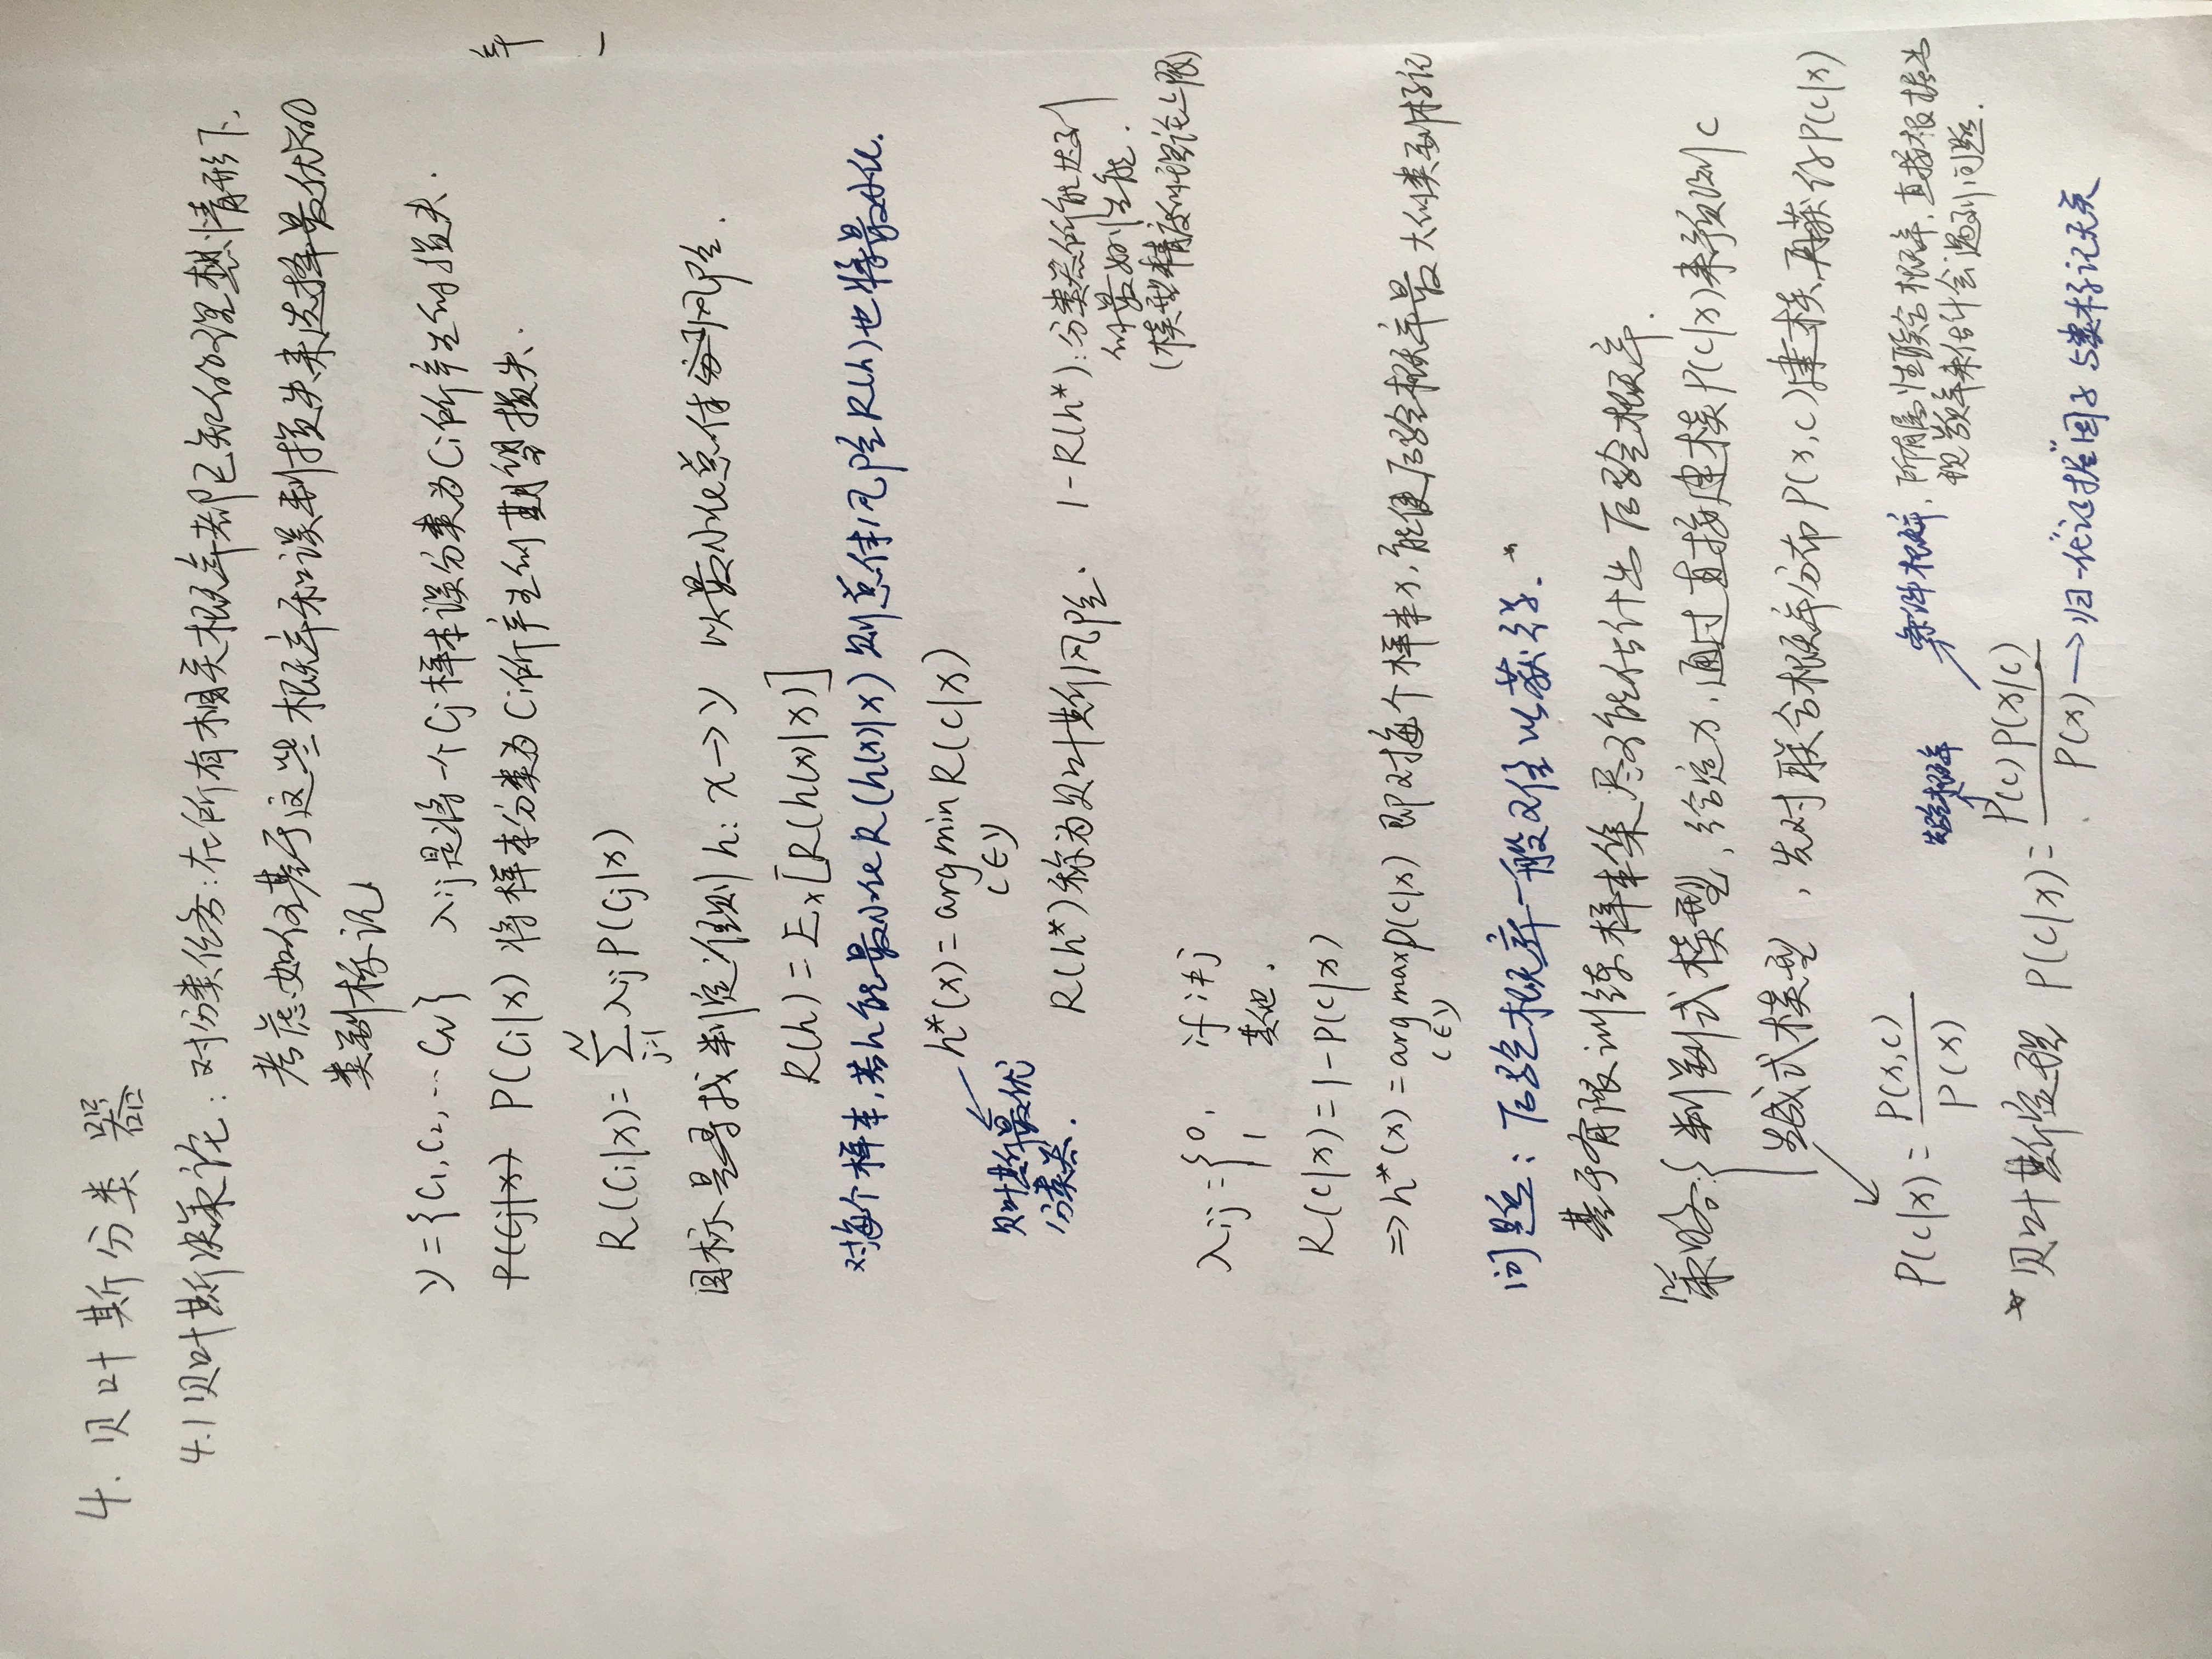 4. 贝叶斯分类器
4.1 贝叶斯决策论: 对分类任务: 在所有相关概率都已知的理想情形下,
考虑如何基于这些概率和误判损失来选择最优的
类别标记
Y = {C₁, C₂, … C_N}  λij是将一个Cj样本误分类为Ci所产生的损失.
P(Cj|x) P(Ci|x) 将样本分类为Ci所产生的期望损失.
R(Ci|x) = ∑_{j=1}^{N} λij P(Cj|x)
目标是寻找判定准则 h: X→Y 以最小化总体风险.
R(h) = E_x[R(h(x)|x)]
对每个样本, 若h能最小化R(h(x)|x) 则总体风险R(h)也将最小化.
h*(x) = argmin R(c|x)
c∈Y
贝叶斯最优
分类器.
R(h*)称为贝叶斯风险. 1-R(h*): 分类器所能达到
的最好性能.
(模型精度的理论上限)
λij = { 0, if i≠j
1 其他.
R(c|x) = 1-P(c|x)
⇒ h*(x) = argmax P(c|x) 即对每个样本x, 能使后验概率最大的类别标记
c∈Y
问题: 后验概率一般难以获得.
基于有限训练样本集尽可能估计出后验概率.
策略: { 判别式模型, 给定x, 通过直接建模P(c|x)来预测c
生成式模型, 先对联合概率分布P(x,c)建模, 再获得P(c|x)
P(c|x) = P(x,c) / P(x)
先验概率
条件概率, 所有属性联合概率, 直接根据出
现频率来估计会遇到问题.
* 贝叶斯定理 P(c|x) = P(c)P(x|c) / P(x) → 归一化"证据"因子 与类标记无关
率